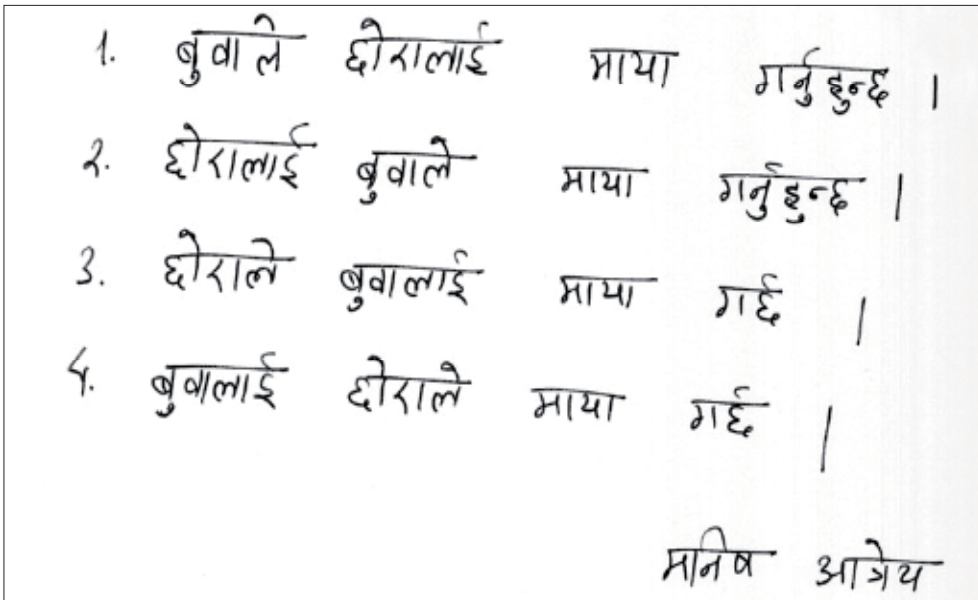 1. बुवाले छोरालाई माया गर्नुहुन्छ ।
२. छोरालाई बुवाले माया गर्नुहुन्छ ।
3. छोराले बुवालाई माया गर्छ ।
४. बुवालाई छोराले माया गर्छ ।
मनिष आत्रेय